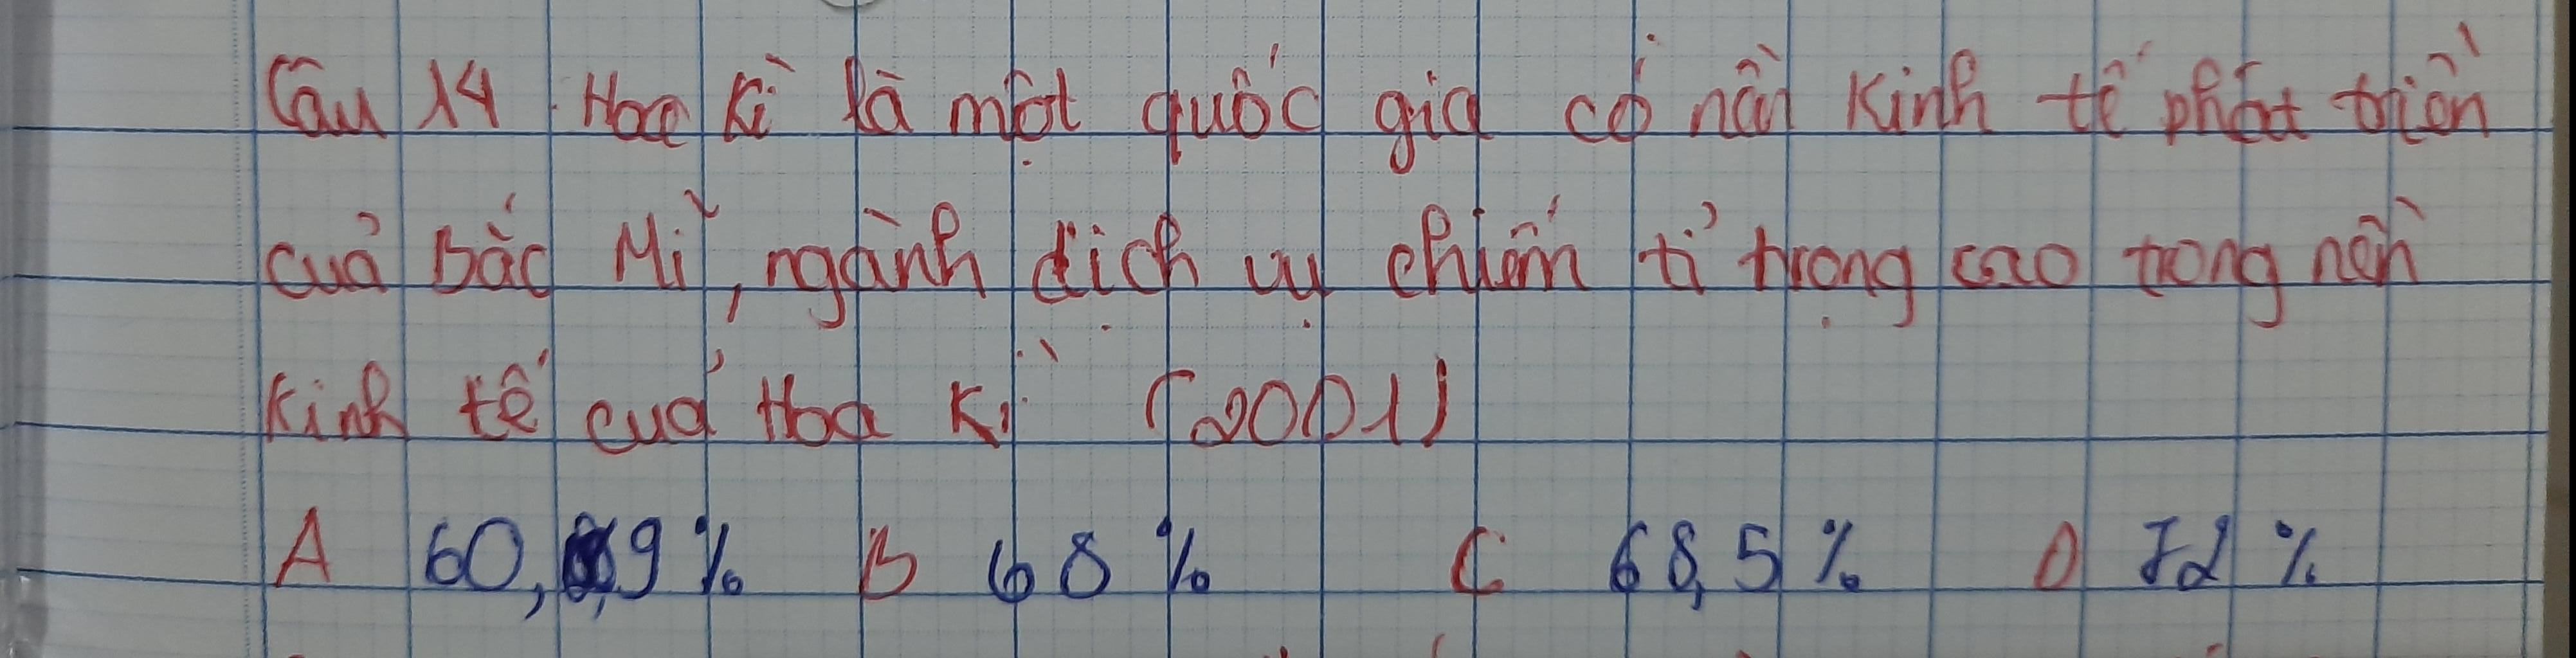 Câu 14. Hoa Kì là một quốc gia có nền kinh tế phát triển
của Bắc Mĩ, ngành dịch vụ chiếm tỉ trọng cao trong nền
kinh tế của Hoa Kì (2001)
A 60,9% B 68% C 68,5% D 72%